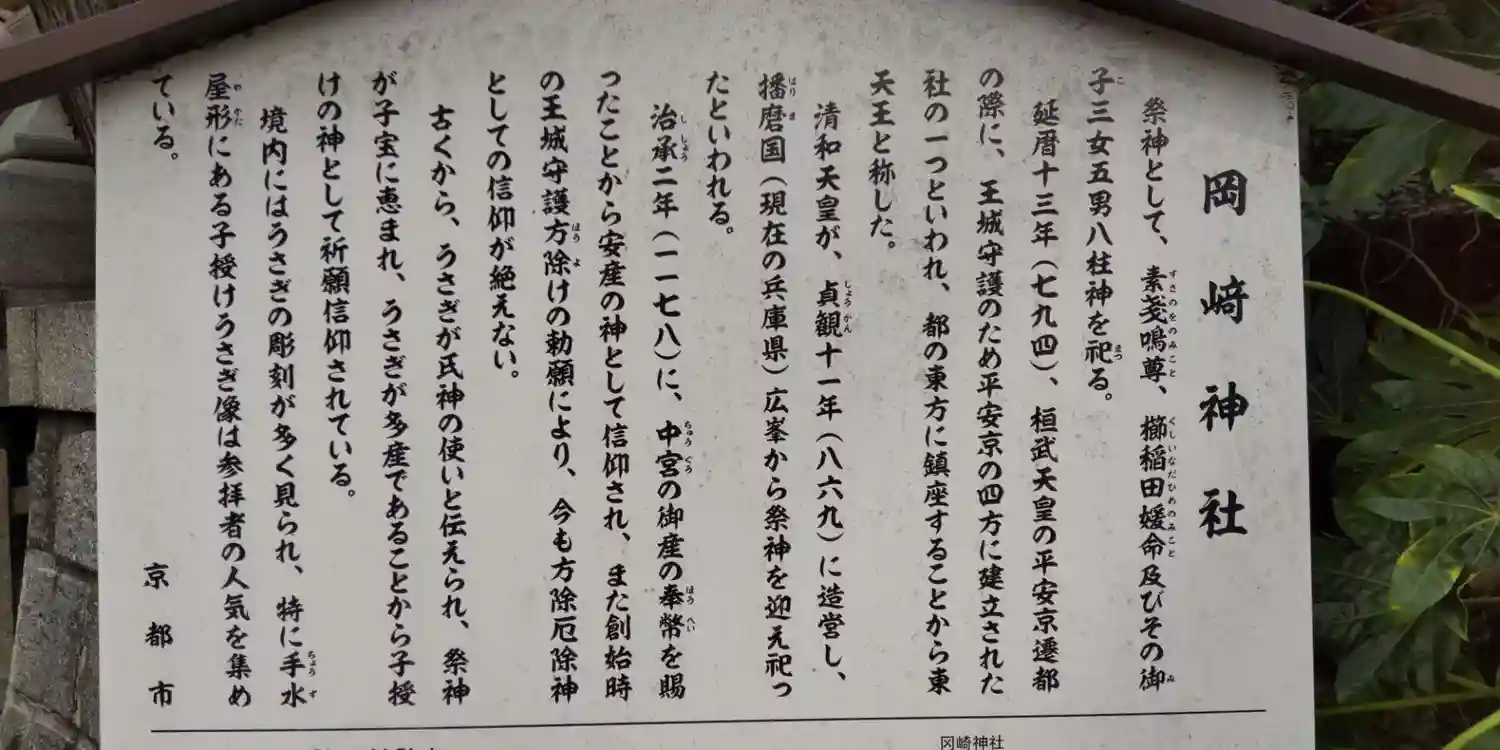 岡﨑神社
祭神として、素戔嗚尊、櫛稲田媛命及びその御
子三女五男八柱神を祀る。
延暦十三年（七九四）、桓武天皇の平安京遷都
の際に、王城守護のため平安京の四方に建立された
社の一つといわれ、都の東方に鎮座することから東
天王と称した。
清和天皇が、貞観十一年（八六九）に造営し、
播磨国（現在の兵庫県）広峯から祭神を迎え祀っ
たといわれる。
治承二年（一一七八）に、中宮の御産の奉幣を賜
ったことから安産の神として信仰され、また創始時
の王城守護方除けの勅願により、今も方除厄除神
としての信仰が絶えない。
古くから、うさぎが氏神の使いと伝えられ、祭神
が子宝に恵まれ、うさぎが多産であることから子授
けの神として祈願信仰されている。
境内にはうさぎの彫刻が多く見られ、特に手水
屋形にある子授けうさぎ像は参拝者の人気を集め
ている。
京都市
岡崎神社